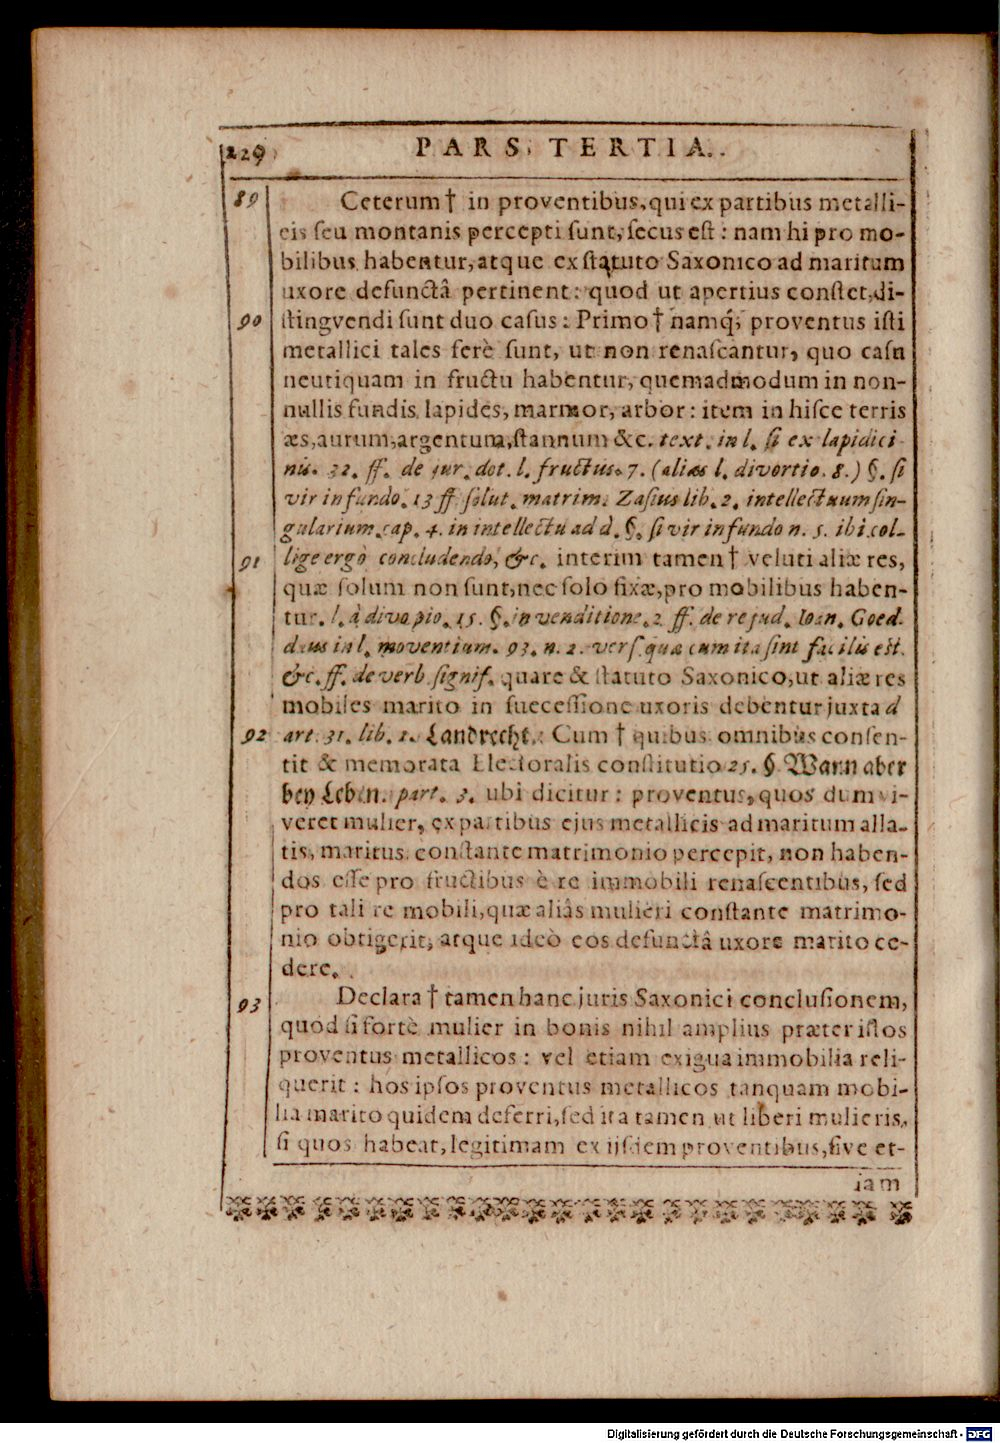 229 PARS. TERTIA.
89 Ceterum † in proventibus, qui ex partibus metalli-
cis seu montanis percepti sunt, secus est : nam hi pro mo-
bilibus habentur, atque ex statuto Saxonico ad maritum
uxore defunctâ pertinent : quod ut apertius constet, di-
90 stingvendi sunt duo casus : Primo † namq́; proventus isti
metallici tales ferè sunt, ut non renascantur, quo casu
neutiquam in fructu habentur, quemadmodum in non-
nullis fundis lapides, marmor, arbor : item in hisce terris
æs, aurum, argentum, stannum &c. text. in l. si ex lapidici
nis. 32. ff. de jur. dot. l. fructus. 7. (aliàs l. divortio. 8.) §. si
vir in fundo. 13 ff. solut. matrim. Zasius lib. 2. intellectuum sin-
gularium. cap. 4. in intellectu ad d. §. si vir in fundo n. 5. ibi col-
91 lige ergò concludendo, &c. interim tamen † veluti aliæ res,
quæ solum non sunt, nec solo fixæ, pro mobilibus haben-
tur. l. à divo pio. 15. §. in venditione. 2 ff. de re jud. Ioan. Goed.
dæus in l. moventium. 93. n. 2. vers. quæ cum ita sint facilis est.
&c. ff. de verb. signif. quare & statuto Saxonico, ut aliæ res
mobiles marito in successione uxoris debentur juxta d
92 art. 31. lib. 1. Landrecht. Cum † quibus omnibus consen-
tit & memorata Electoralis constitutio 25. §. Wann aber
bey Leben. part. 3. ubi dicitur : proventus, quos dum vi-
veret mulier, ex partibus ejus metallicis ad maritum alla-
tis, maritus constante matrimonio percepit, non haben-
dos esse pro fructibus è re immobili renascentibus, sed
pro tali re mobili, quæ aliàs mulieri constante matrimo-
nio obtigerit, atque ideò eos defunctâ uxore marito ce-
dere.
93 Declara † tamen hanc juris Saxonici conclusionem,
quod si fortè mulier in bonis nihil amplius præter istos
proventus metallicos : vel etiam exigua immobilia reli-
querit : hos ipsos proventus metallicos tanquam mobi-
lia marito quidem deferri, sed ita tamen ut liberi mulieris,
si quos habeat, legitimam ex iisdem proventibus, sive et-
iam
Digitalisierung gefördert durch die Deutsche Forschungsgemeinschaft - DFG